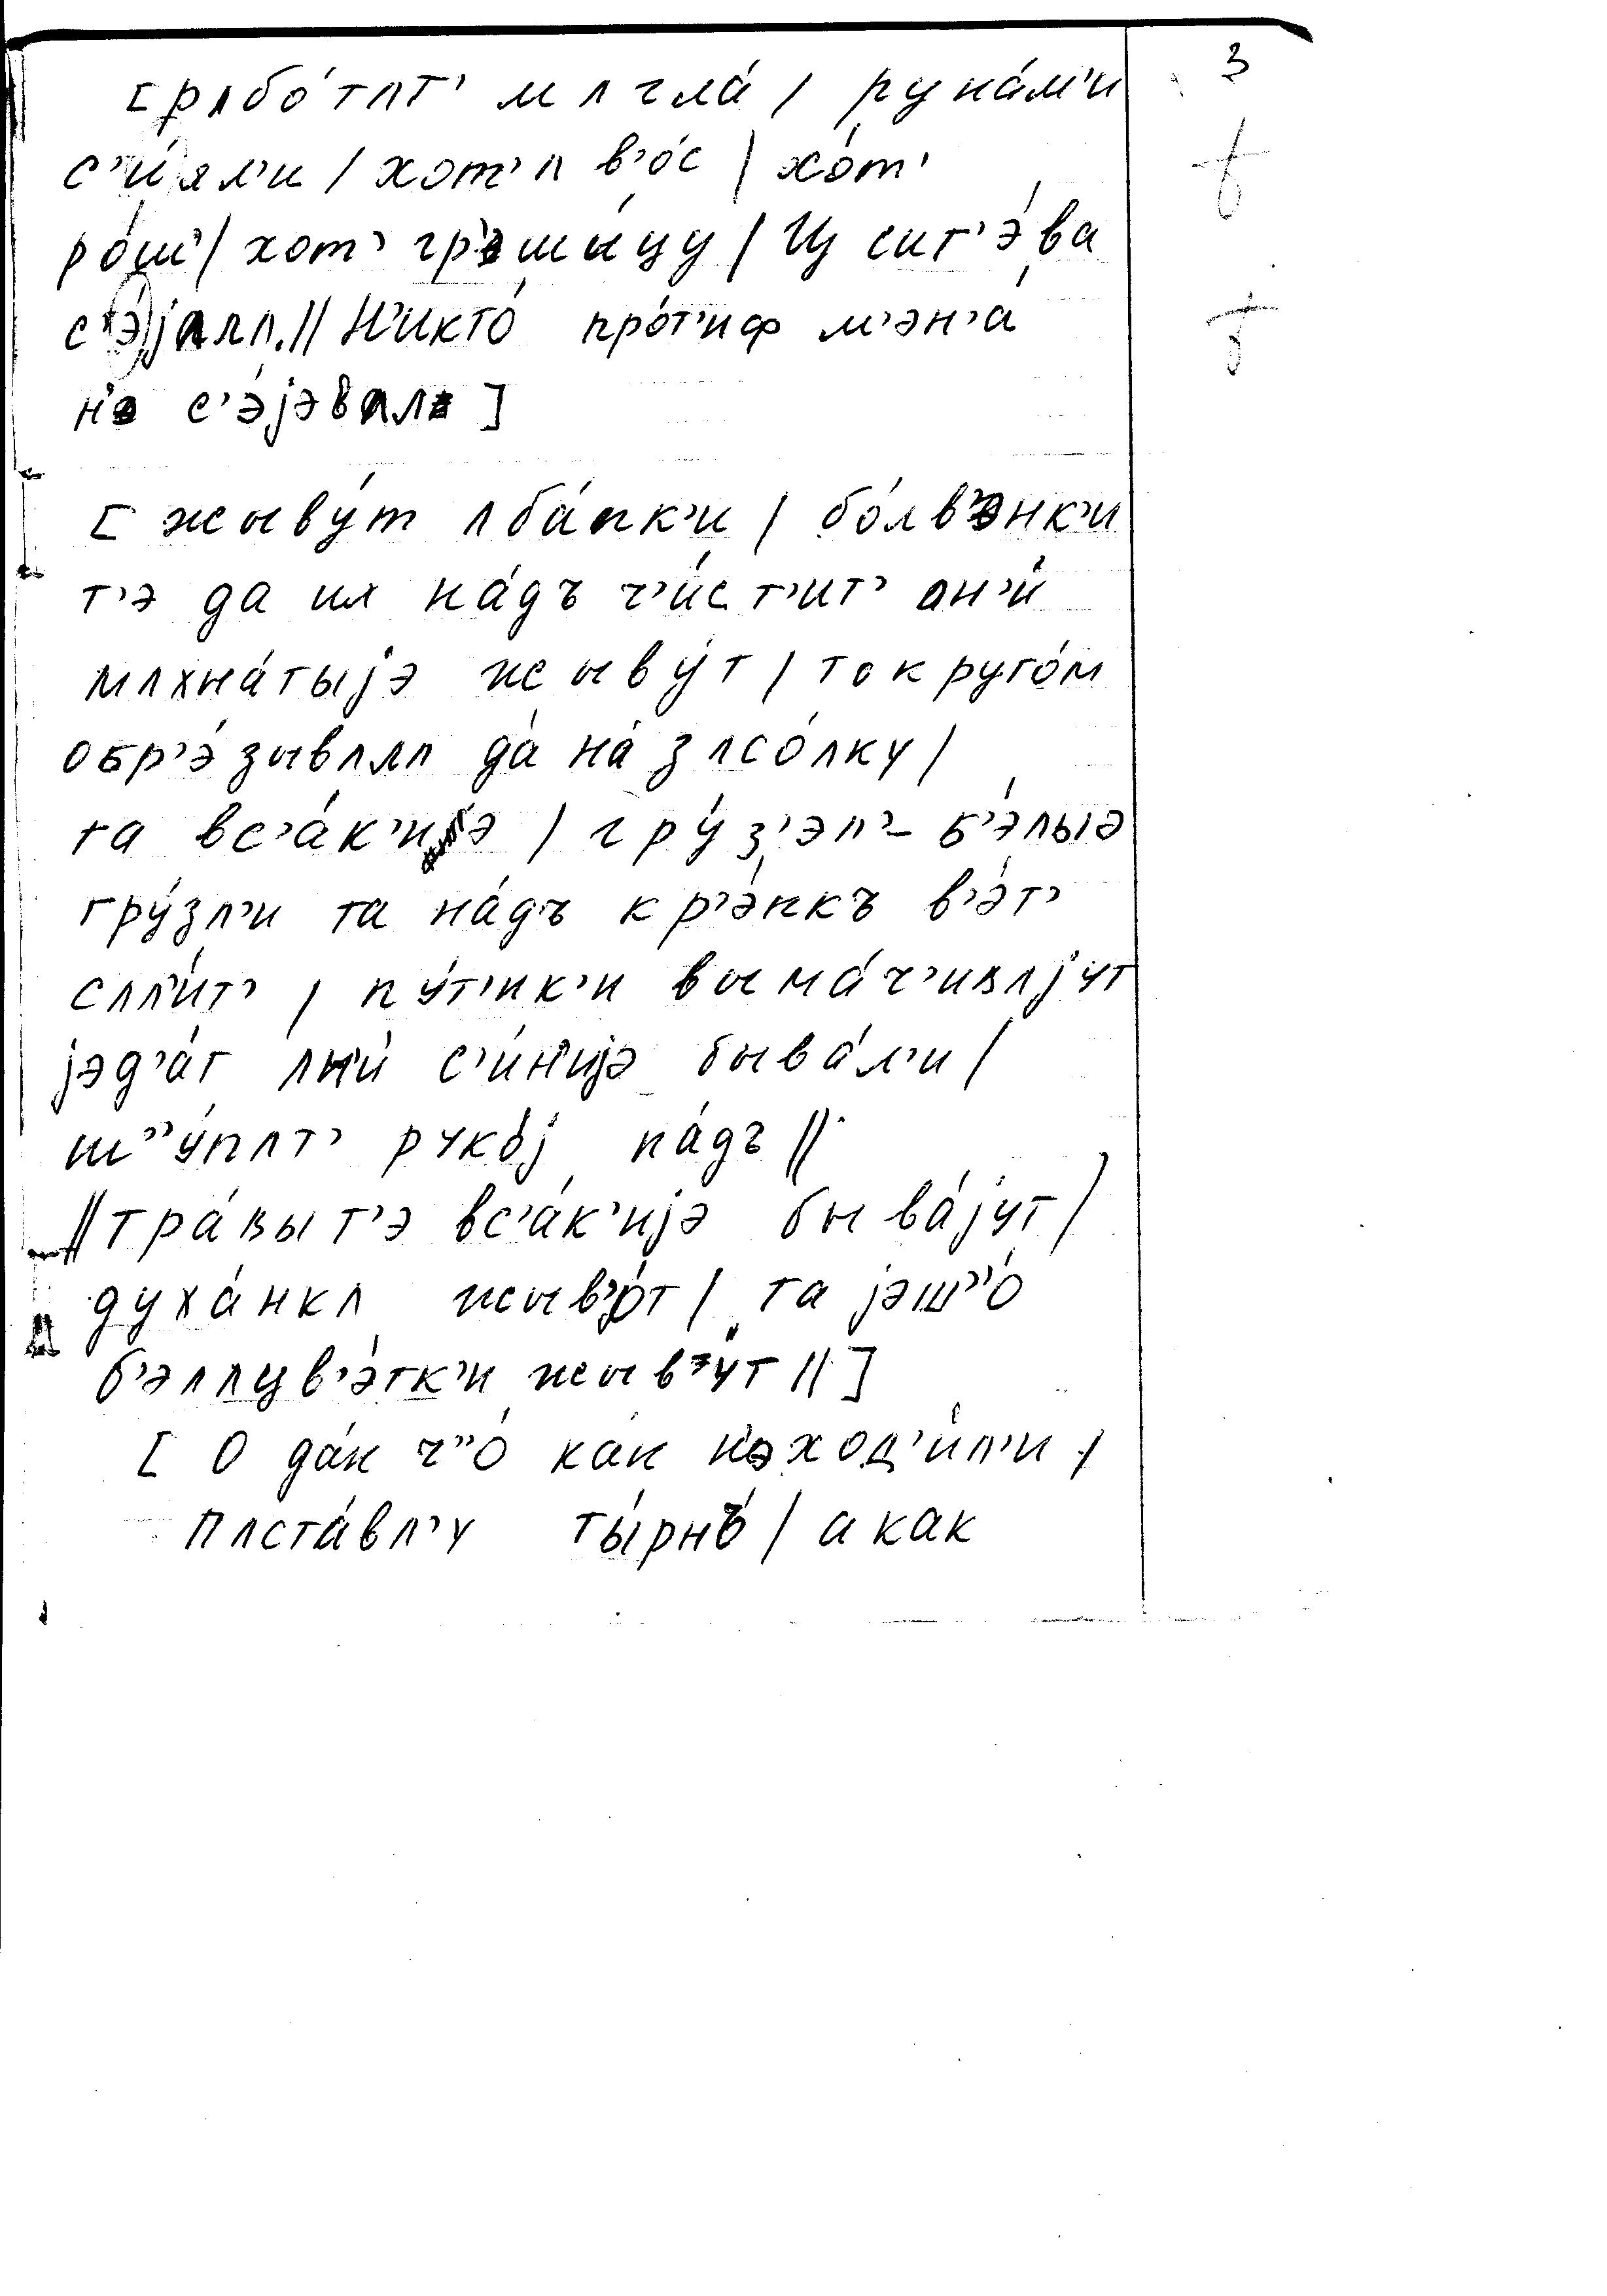 3
[рʌбо́тʌт' мʌгла́ / рука́м'и
с'и́ял'и / хот' л в'о́с / хо́т'
ро́ш' / хот' гр'эшы́цу / Ц сит'э́ва
с'э́јʌлʌ. // Н'икто́ про́т'иф м'эн'а́
н'э с'э́јэвʌлъ ]
[ жыву́т ʌба́пк'и / бо́лв'энк'и
т'э да их на́дъ ч'и́ст'ит' он'и́
мʌхна́тыјэ жыву́т / то круго́м
обр'э́зывʌлʌ да́ на́ зʌсо́лку /
та вс'а́к'иэ / гру́з'эл'- б'э́лыэ
гру́зл'и та на́дъ кр'э́пкъ в'э́т'
сʌл'и́т' / пу́т'ик'и выма́ч'ивʌјут
јэд'а́т ʌн'и́ с'и́н'ијэ быва́л'и /
ш''у́пʌт' руко́ј на́дъ //
// тра́вы т'э вс'а́к'ијэ быва́јут /
духа́нкʌ жыв'о́т / та јэш''о́
б'э́лʌцв'э́тк'и жыв'у́т // ]
[ О да́к ч''о́ ка́к н'эход'и́л'и /
пʌста́вл'у ты́рнъ́ / а как